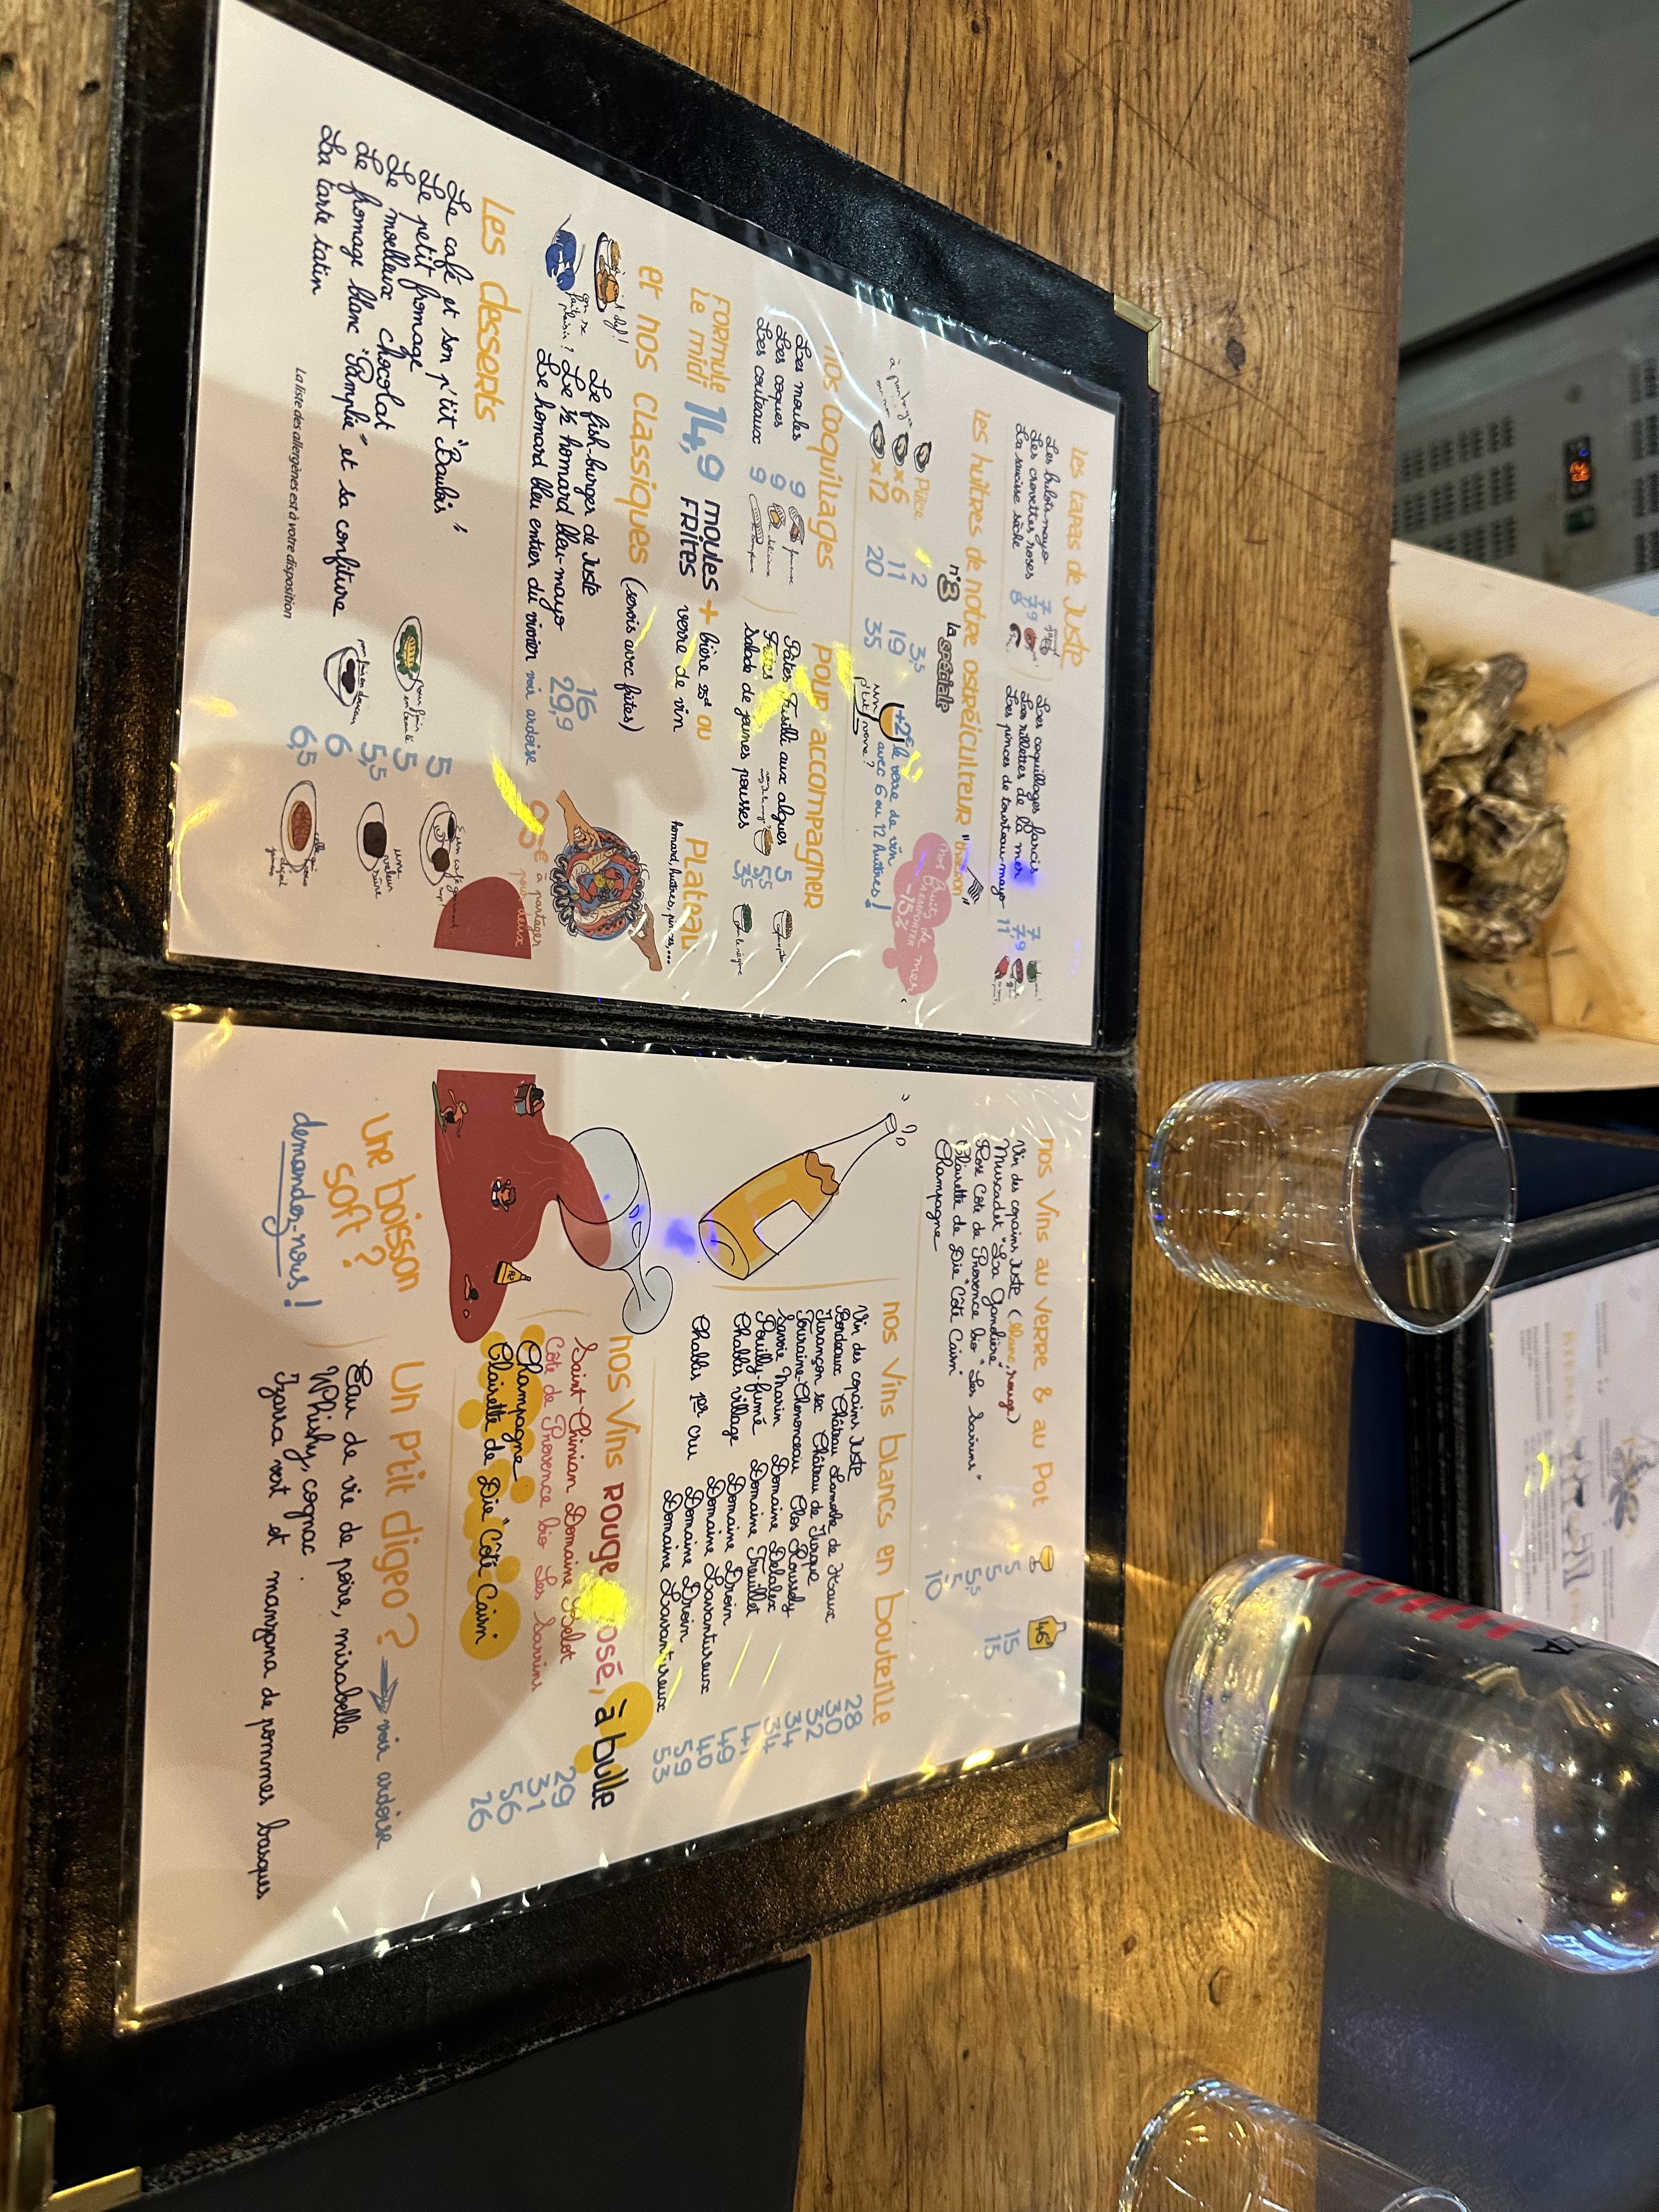 Les tapas de Juste
Les bulots mayo 7
Les crevettes roses 7,9
La saucisse sèche 8
Les coquillages farcis 7
Les rillettes de la mer 7,9
Les pinces de tourteau-mayo 11
Les huîtres de notre ostréiculteur "thaëron"
n°3 la spéciale
Pièce 2 3,5
x6 11 19
x12 20 35
+2€ le verre de vin
avec 6 ou 12 huîtres !
un p'tit verre ?
nos fruits de mer
à emporter
-15%
nos coquillages
Les moules 9
Les coques 9
Les couteaux 9
pour accompagner
Pâtes Fusilli aux algues 5
Frites 5,5
Salade de jeunes pousses 3,5
Formule
Le midi 14,9 moules
FRITES + bière 25cl ou
verre de vin
et nos classiques (servis avec frites)
Le fish-burger de Juste 16
Le ½ homard bleu-mayo 29,9
Le homard bleu entier du vivier voir ardoise
on se
fait
plaisir ?
PLATEAU
homard, huîtres, pinces,...
95€ à partager
pour deux
Les desserts
Le café et son p'tit "Baulois" 5
Le petit fromage 5
Le moelleux chocolat 5,5
Le fromage blanc "Pamplie" et sa confiture 6
La tarte tatin 6,5
une
valeur
sûre
La liste des allergènes est à votre disposition
nos vins au verre & au pot
46cl
Vin des copains Juste (blanc, rouge) 5 15
Muscadet "La Gandière" 5 15
Rosé Côte de Provence bio "Les Sarrins" 5,5
Clairette de Die "Côté Cairn" 5
Champagne 10
nos vins blancs en bouteille
Vin des copains Juste 28
Bordeaux Château Lamothe de Haux 30
Jurançon sec Château de Jurque 32
Touraine-Chenonceau Clos Roussely 34
Savoie Marin Domaine Delalex 34
Pouilly-fumé Domaine Treuillet 41
Chablis village Domaine Droin 49
Domaine Lavantureux 40
Chablis 1er cru Domaine Droin 59
Domaine Lavantureux 53
nos vins rouge, rosé, à bulle
Saint Chinian Domaine Belot 29
Côte de Provence bio Les Sarrins 31
Champagne 56
Clairette de Die "Côté Cairn" 26
une boisson
soft ?
demandez-nous !
Un p'tit digeo ? voir ardoise
Eau de vie de poire, mirabelle
Whisky, cognac
Izarra vert et manzana de pommes basques